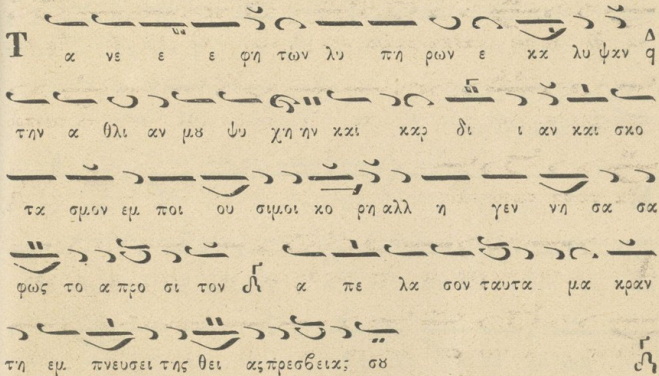 Τ α νε ε ε φη των λυ πη ρων ε κα λυ ψαν Δ
την α θλι αν μȣ ψυ χη ην και καρ δι ι αν και σκο
τα σμον εμ ποι ου σιμοι κο ρη αλλ η γεν νη σα σα
φως το α προ σι τον α πε λα σον ταυτα μα κραν
τη εμ πνευσει της θει ας πρεσβειας; σȣ